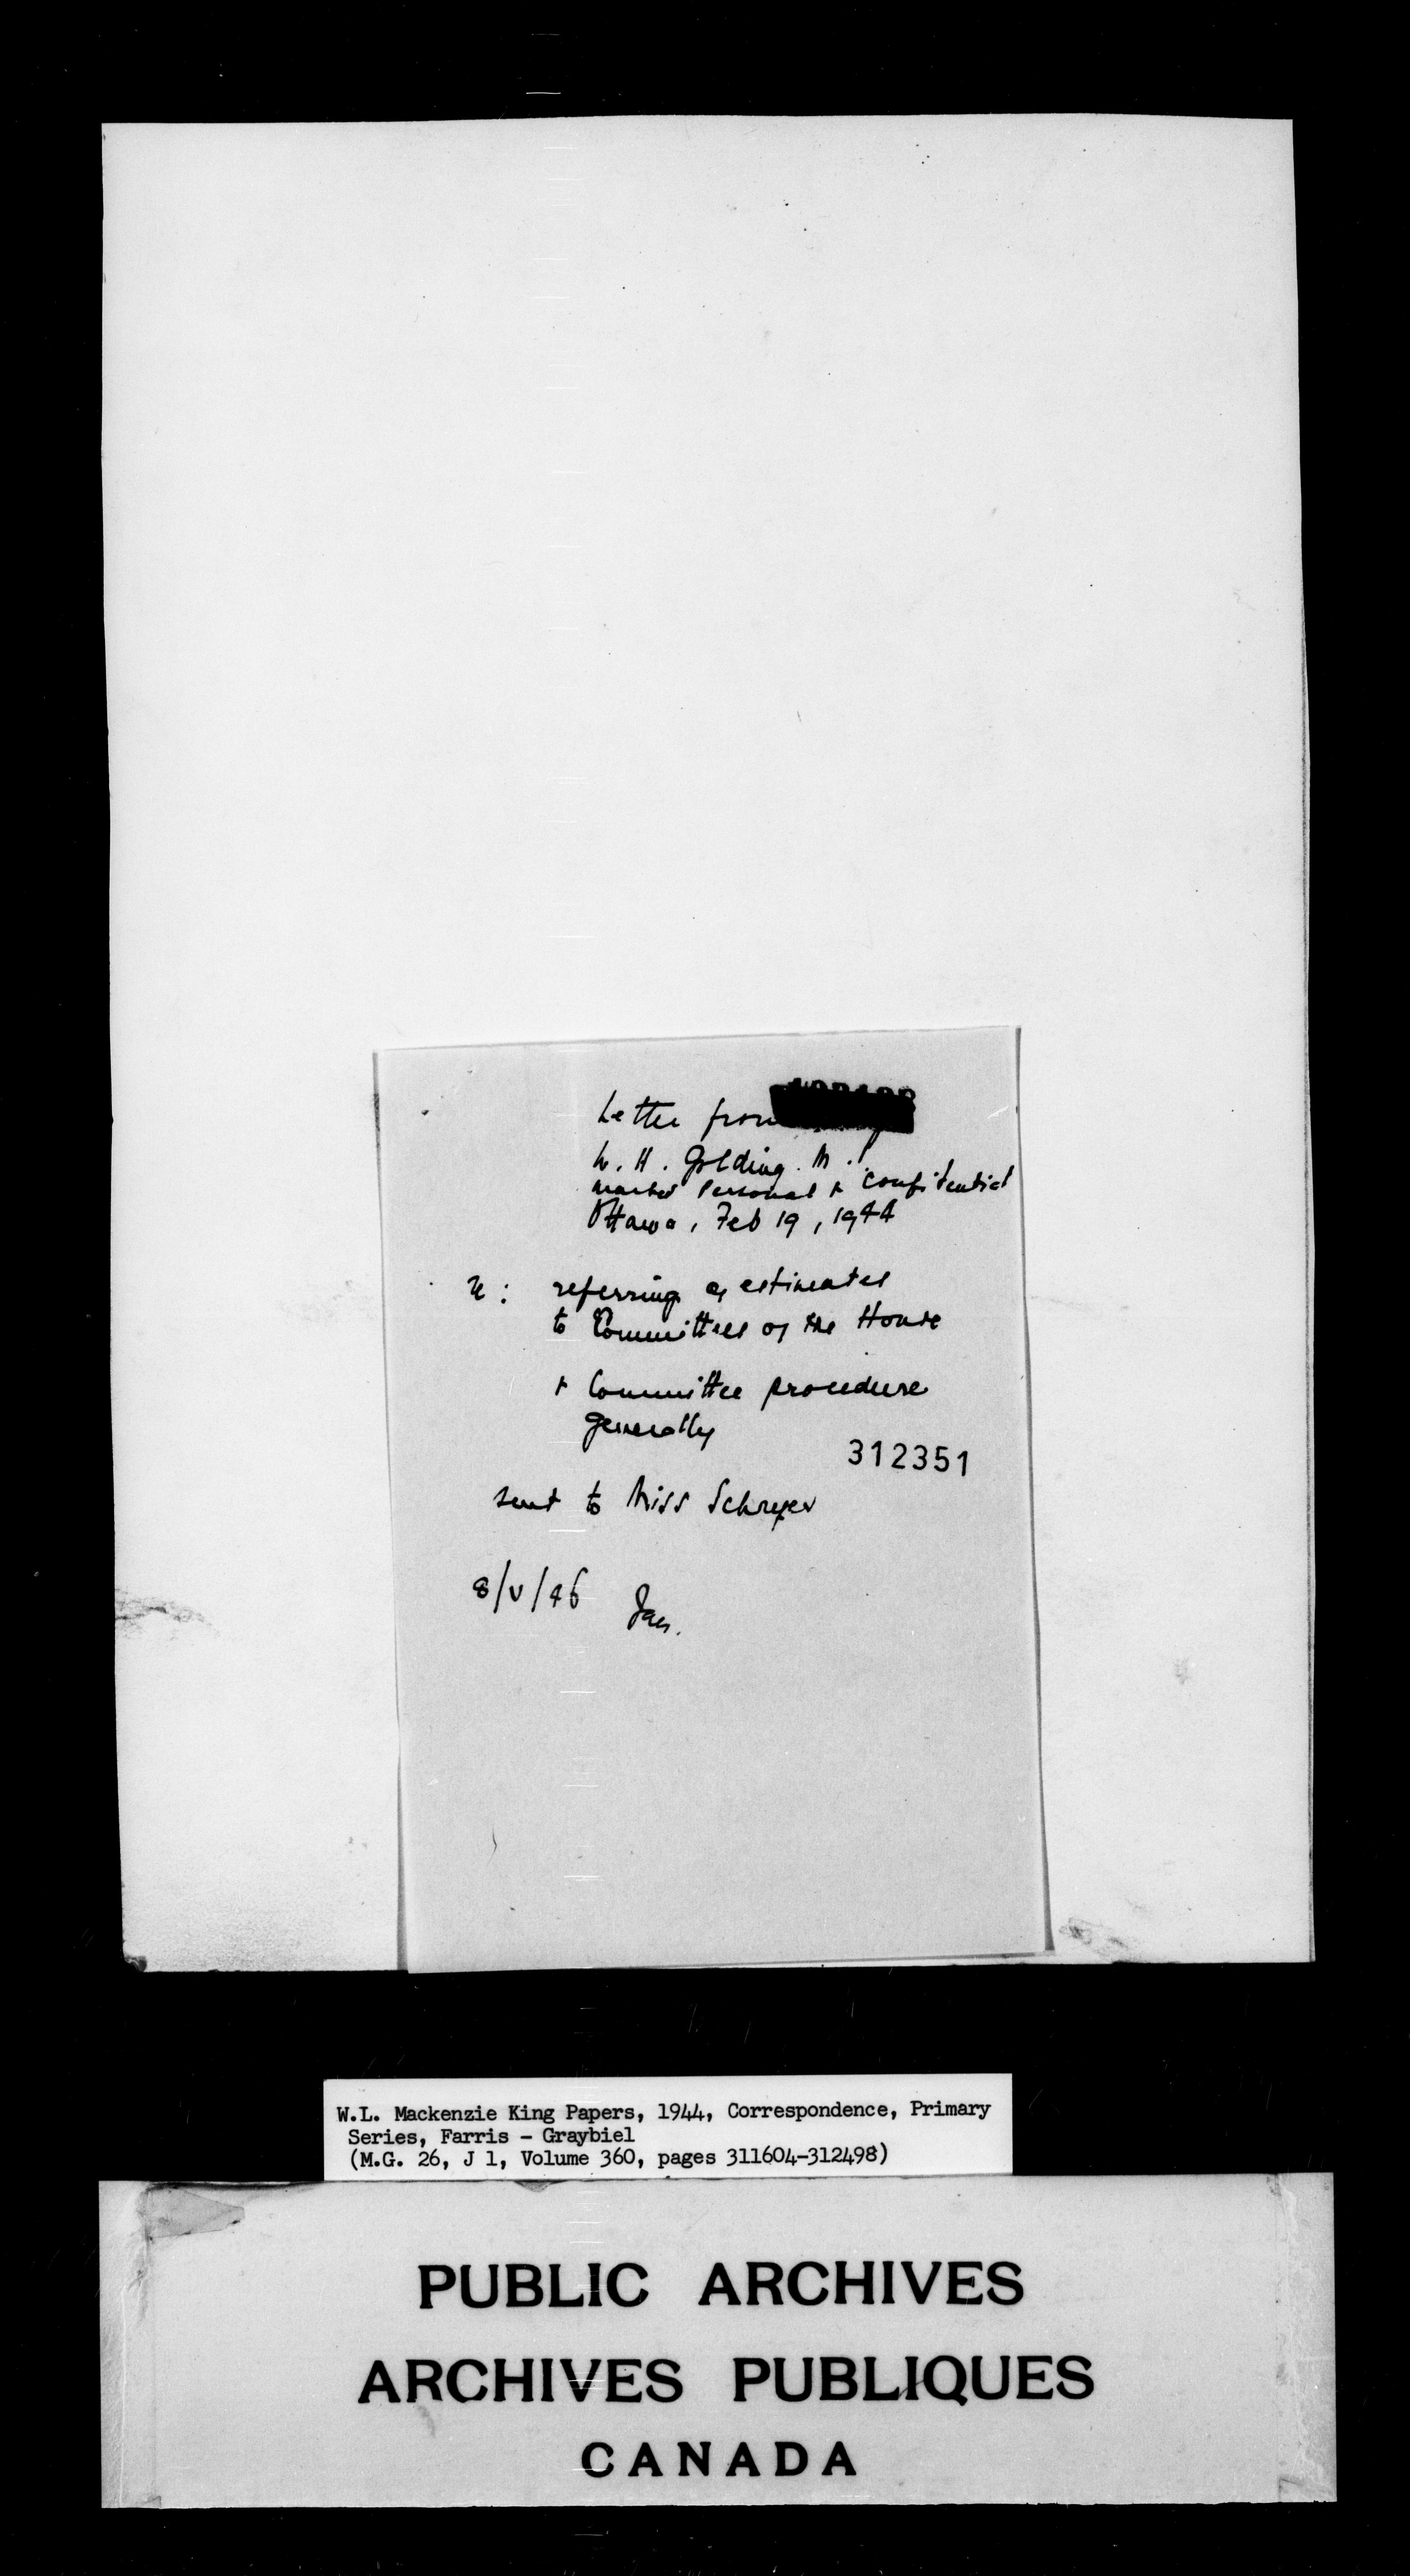 Letter from
W. H. Golding. M.P.
marked Personal & Confidential
Ottawa, Feb 19, 1944
re: referring of estimates
to Committees of the House
& Committee procedure
generally
312351
sent to Miss Schryer
8/V/46
W.L. Mackenzie King Papers, 1944, Correspondence, Primary
Series, Farris - Graybiel
(M.G. 26, J 1, Volume 360, pages 311604-312498)
PUBLIC ARCHIVES
ARCHIVES PUBLIQUES
CANADA